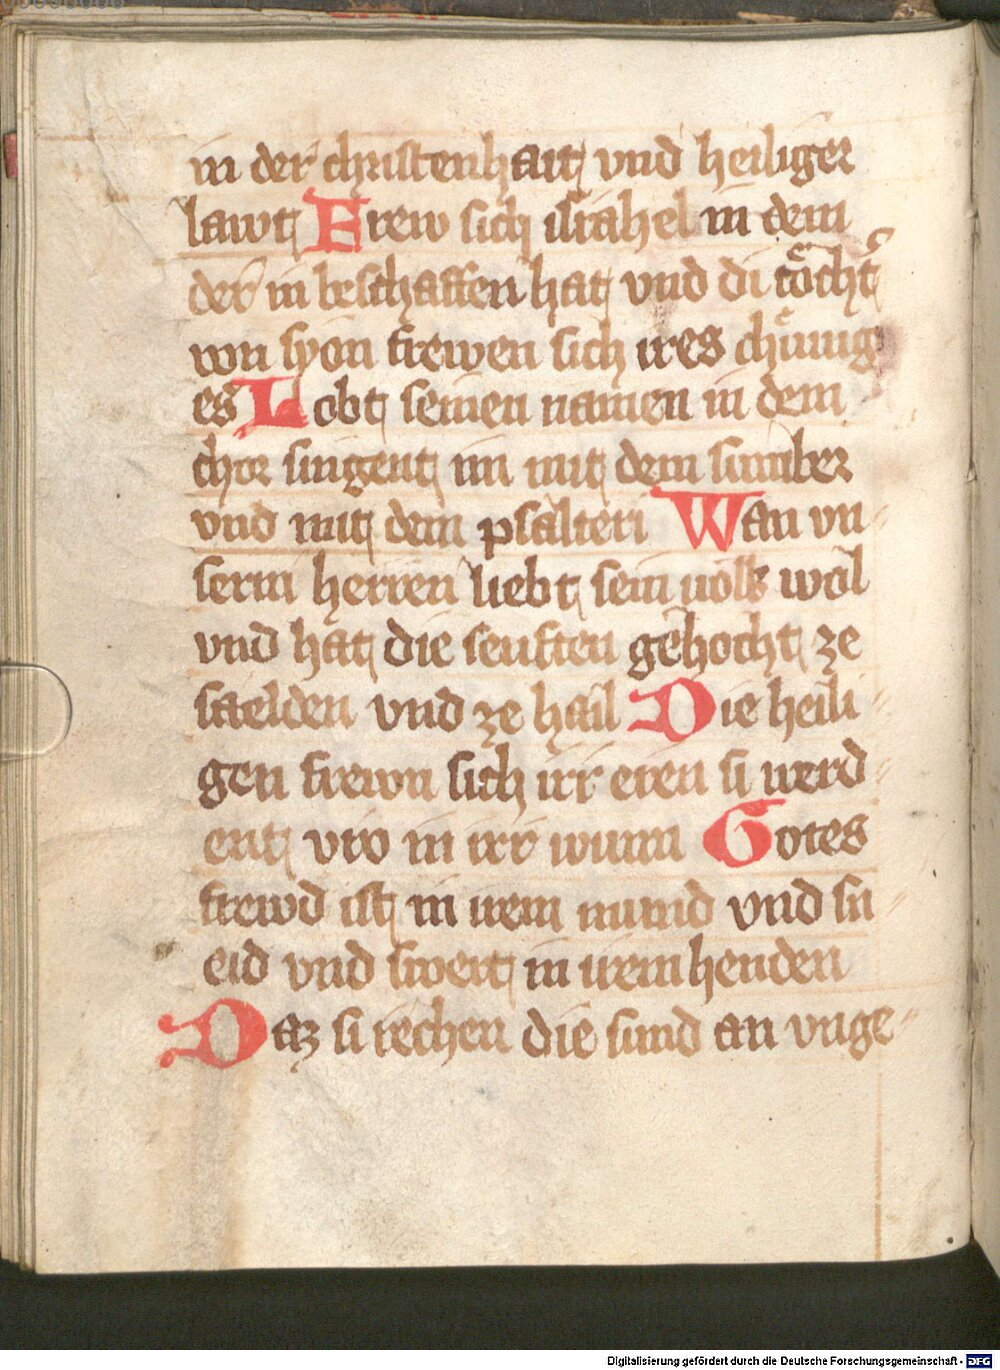 in der christenhait vnd heiliger
lawt Frew sich israhel in dem
der in beschaffen hat vnd di töcht
von syon frewen sich ires chünig
es Lobt seinen namen in dem
chor singent im mit dem sumber
vnd mit dem psalteri Wan vn
serm herren liebt sein uolk wol
vnd hat die senften gehocht ze
saelden vnd ze hail Die heili
gen frewn sich irr eren si werd
ent vro in irr wunn Gotes
frewd ist in irem mund vnd sn
eid vnd swert in iren henden
Daz si rechen die sund an vnge
Digitalisierung gefördert durch die Deutsche Forschungsgemeinschaft - DFG